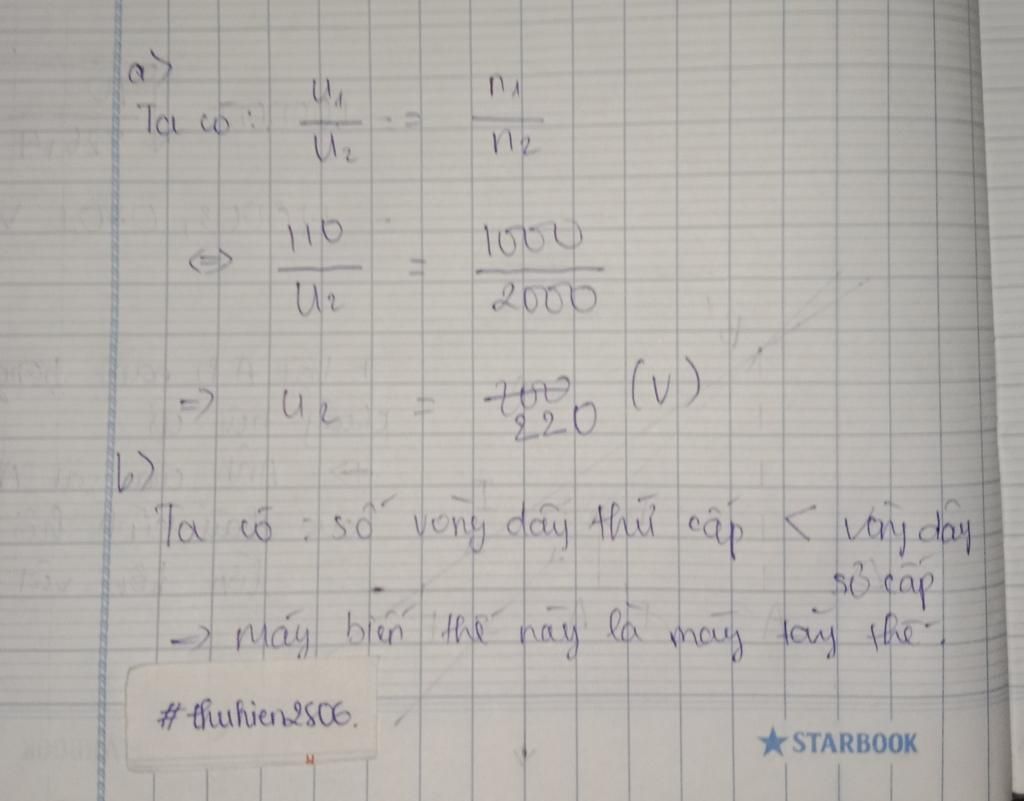 a)
Ta có: u₁/u₂ = n₁/n₂
<=> 110/u₂ = 1000/2000
=> u₂ = 220 (V)
b)
Ta có : số vòng dây thứ cấp < vòng dây
sơ cấp
=> máy biến thế này là máy tăng thế.
#thuhien2506.
STARBOOK